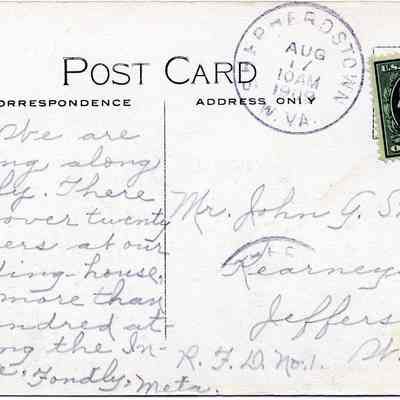 POST CARD
CORRESPONDENCE
ADDRESS ONLY
SHEPHERDSTOWN
AUG
17
10AM
W. VA.
U.S.
We are
ng along
ly. There
over twenty
ers at our
ding-house,
more than
undred at-
ng the In-
Fondly, Meta.
Mr. John G. S
Kearneys
Jeffers
R. F. D. No. 1.
W.